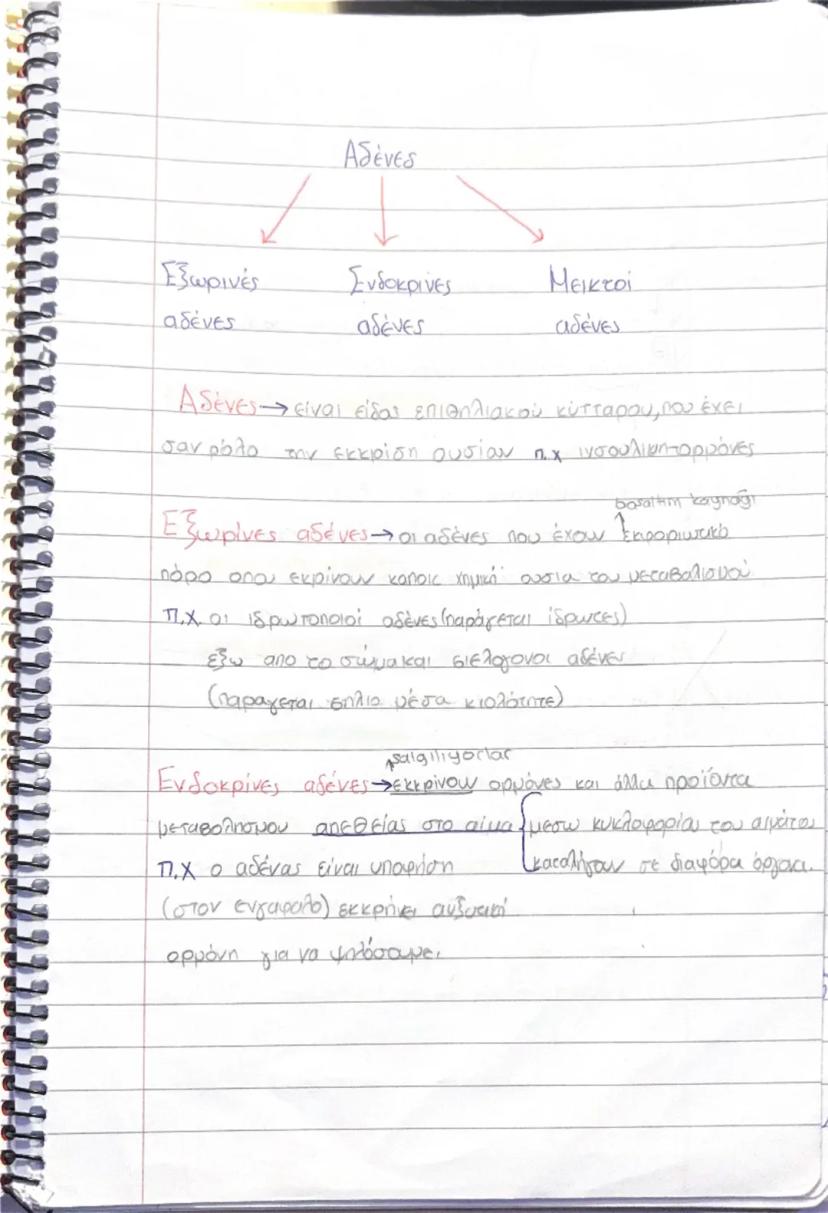 Αδένες
Εξωρινές Ενδοκρινες Μεικτοί
αδένες αδένες αδένες
Αδένες → είναι είδος επιθηλιακού κύτταρου, που έχει
σαν ρόλο την εκκρίση ουσίαν π.χ ινσουλινη-ορμόνες
bosaltım kaynağı
Εξωρίνες αδένες → οι αδένες που έχουν εκφοριωτικό
πόρο οπου εκρίνουν καποιε χημική ουσια του μεταβολισμού
Π.Χ. οι ιδρωτοποιοί αδένες (παράγεται ίδρωτες)
εξω απο το σώμα και σιελογονοι αδένες
(παραγεται σηλιο μέσα κιολότητε)
salgiliyorlar
Ενδοκρίνες αδένες → εκκρίνουν ορμόνες και άλλα προϊόντα
μεταβολησμου απεθείας στο αίμα μεσω κυκλοφορία του αιμάτου
Π.Χ ο αδένας είναι υποφήση καταλήγουν σε διαφόρα όργανα.
(στον ενγαφαλο) εκκρήνει αυξητική
ορμόνη για να ψηλόσουμε.